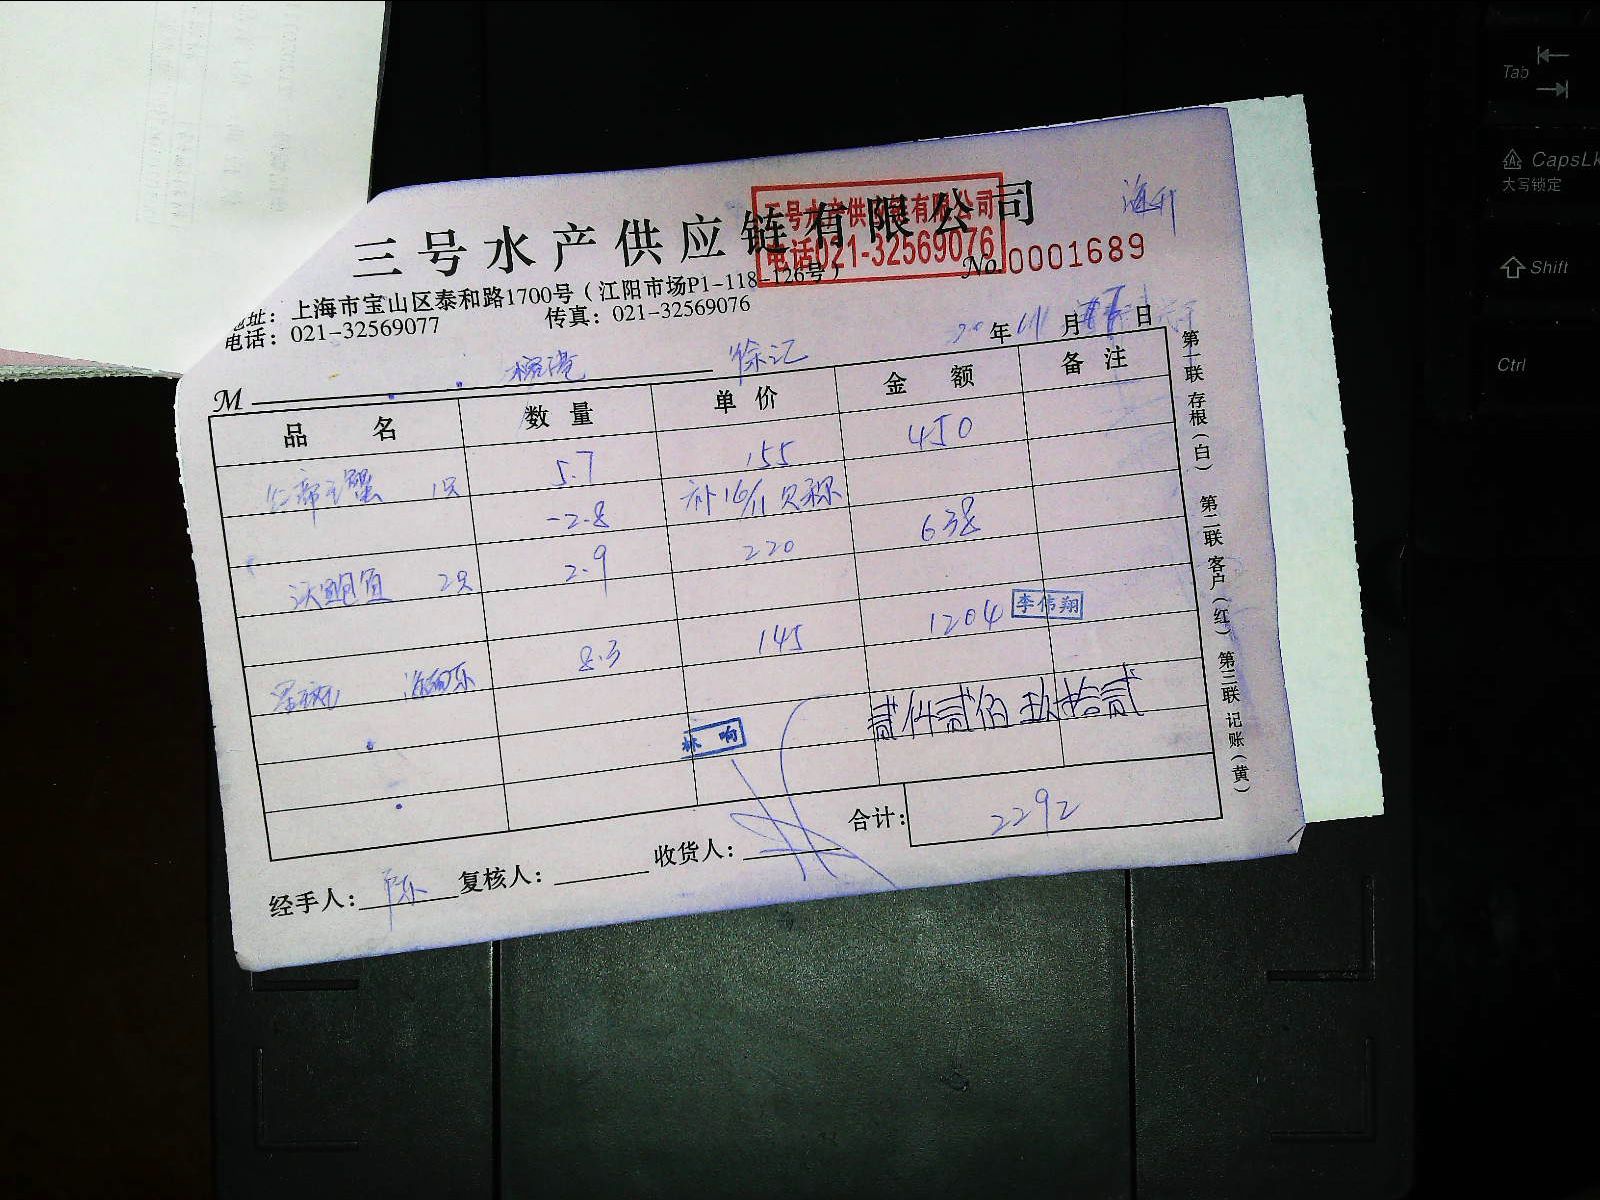 三号水产供应链有限公司
三号水产供应链有限公司
电话021-32569076
No. 0001689
地址：上海市宝山区泰和路1700号（江阳市场P1-118-126号）
电话：021-32569077 传真：021-32569076
年 月 日
M 徐记
品名 数量 单价 金额 备注
1只 5.7 155 450
-2.8 补16/11贝称
2只 2.9 220 638
8.3 145 1204 李伟翔
林响 贰仟贰佰玖拾贰
合计： 2292
经手人：陈 复核人： 收货人：
第一联存根（白） 第二联客户（红） 第三联记账（黄）
Tab
CapsLk
大写锁定
Shift
Ctrl